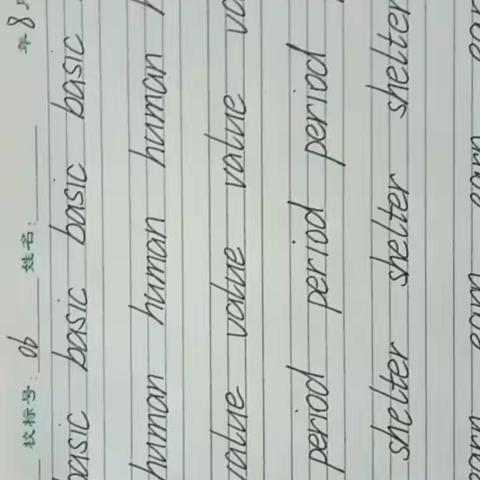 校标号: 06 姓名: 年 8
basic basic basic basic
human human human
value value value va
period period period
shelter shelter shelter